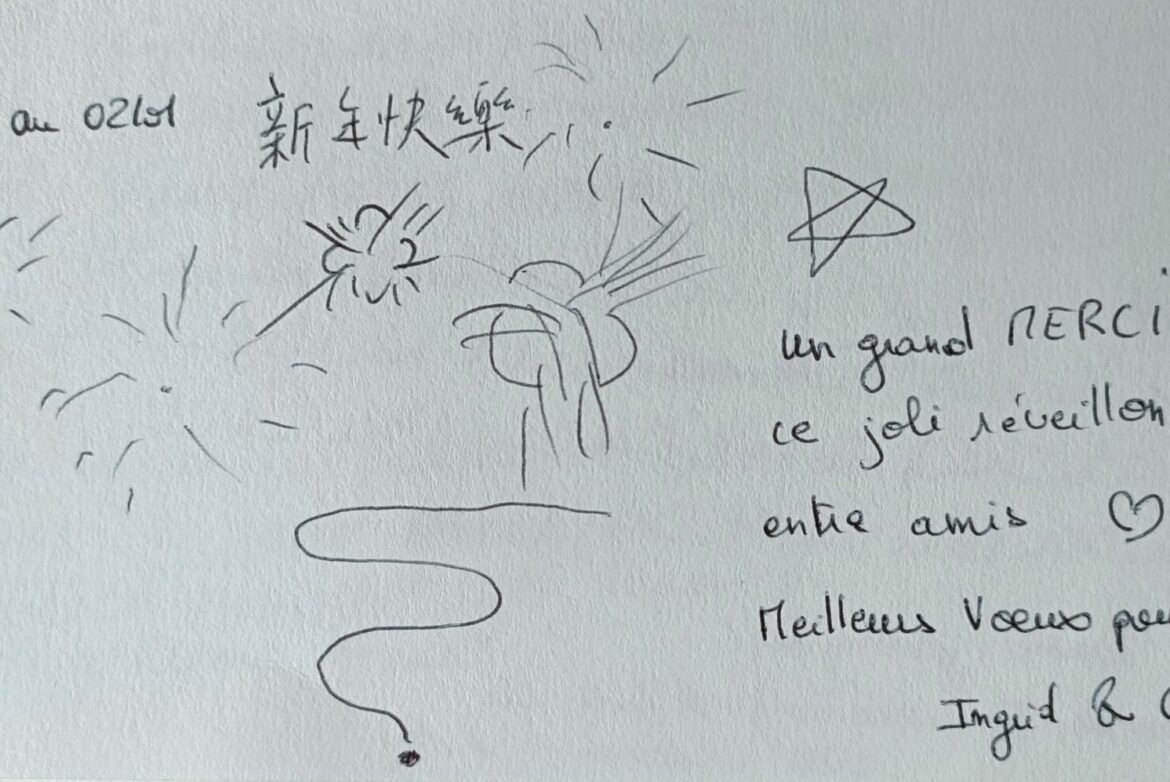 au 02/01 新年快樂
un grand MERCI
ce joli réveillon
entre amis ♡
Meilleurs Vœux pour
Ingrid &